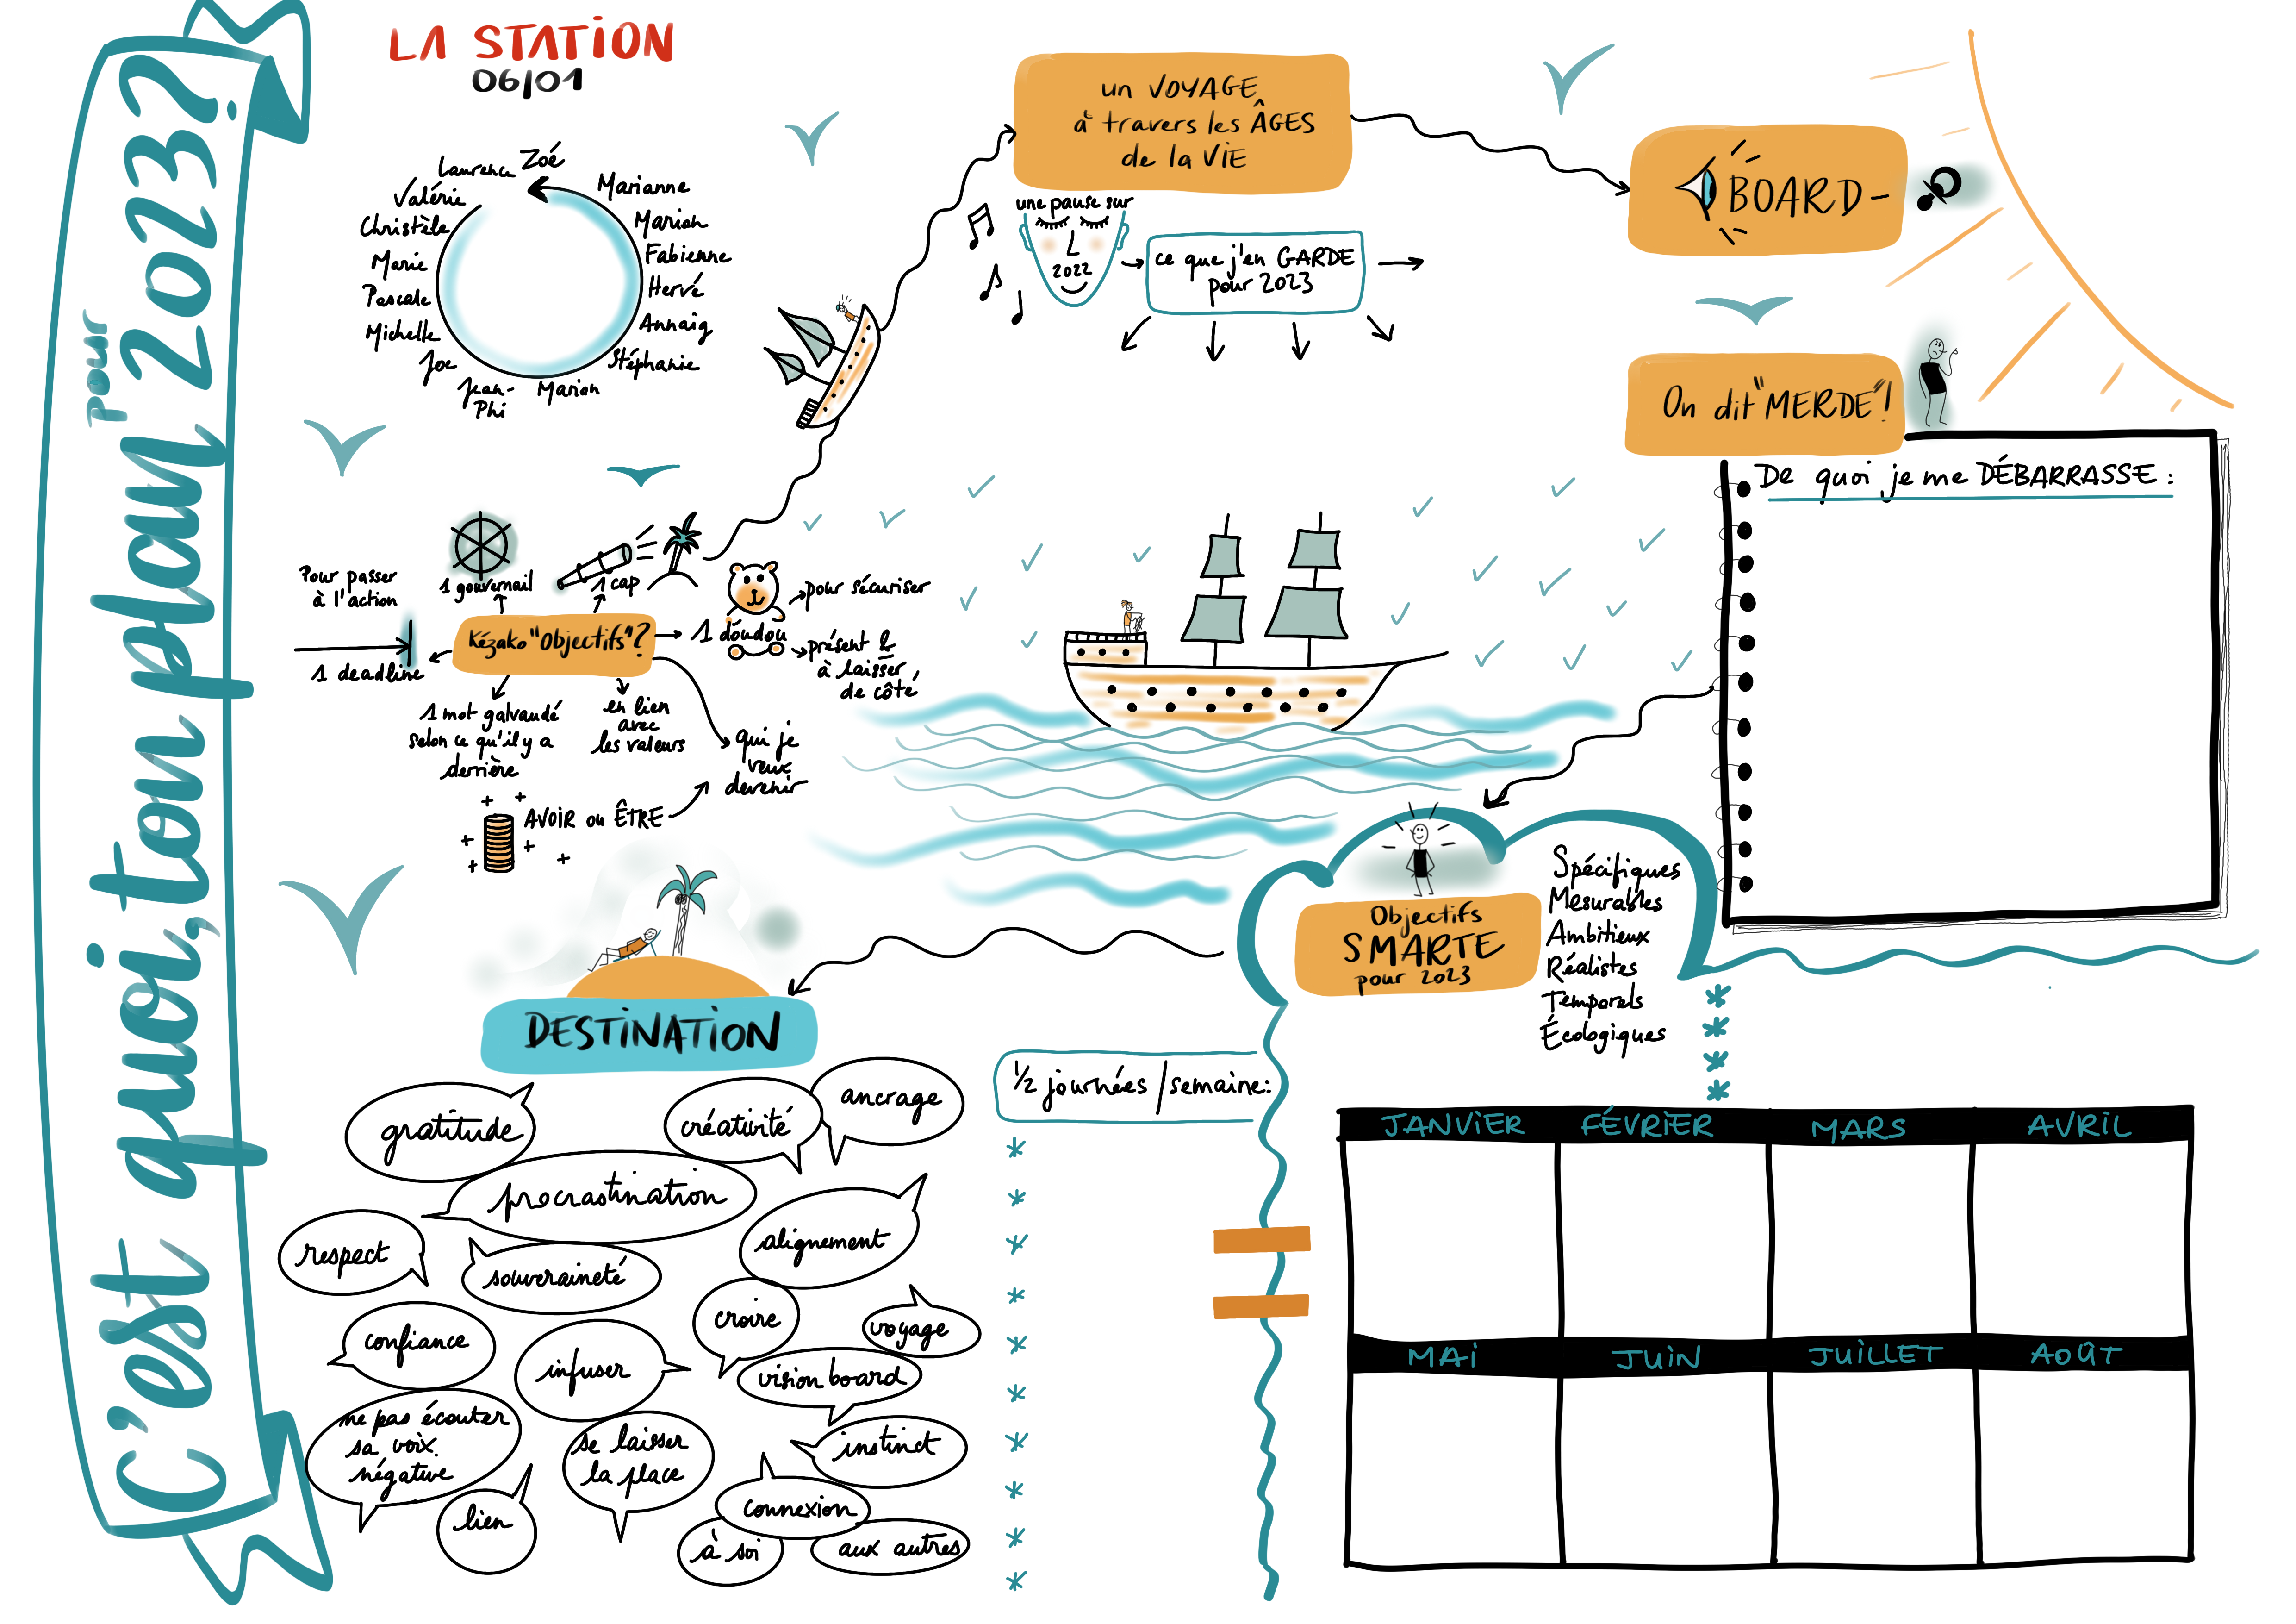 C'est quoi, ton plan pour 2023?
LA STATION
06/01
Zoé
Marianne
Marion
Fabienne
Hervé
Annaig
Stéphanie
Marion
Jean-
Phi
Joe
Michelle
Pascale
Marie
Christèle
Valérie
Laurence
Kézako "Objectifs"?
Pour passer
à l'action
1 deadline
1 gouvernail
1 cap
1 doudou
pour sécuriser
présent &
à laisser
de côté
1 mot galvaudé
selon ce qu'il y a
derrière
en lien
avec
les valeurs
qui je
veux
devenir
AVOIR ou ÊTRE
un VOYAGE
à travers les ÂGES
de la ViE
une pause sur
2022
ce que j'en GARDE
pour 2023
BOARD-
On dit "MERDE"!
De quoi je me DÉBARRASSE :
Objectifs
SMARTE
pour 2023
Spécifiques
Mesurables
Ambitieux
Réalistes
Temporels
Écologiques
DESTiNATiON
gratitude
créativité
ancrage
procrastination
respect
souveraineté
alignement
confiance
infuser
croire
voyage
vision board
ne pas écouter
sa voix
négative
se laisser
la place
instinct
lien
connexion
à soi
aux autres
1/2 journées/semaine:
JANViER
FÉVRiER
MARS
AVRiL
MAi
JUiN
JUiLLET
AOÛT